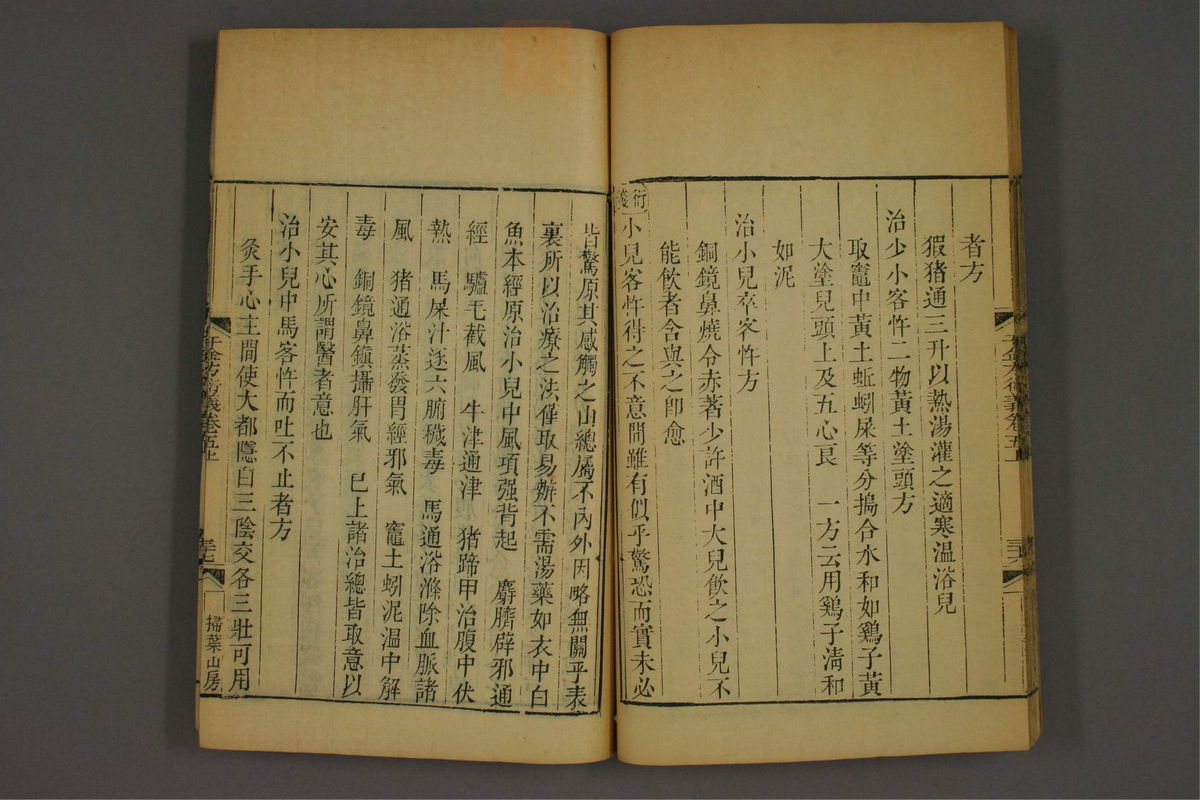 者方
猳猪通三升以熱湯灌之適寒温浴兒
治少小客忤二物黃土塗頭方
取竈中黃土蚯蚓屎等分搗合水和如鷄子黃
大塗兒頭上及五心良　一方云用鷄子淸和
如泥
治小兒卒客忤方
銅鏡鼻燒令赤著少許酒中大兒飲之小兒不
能飲者含與之卽愈
衍義小兒客忤得之不意間雖有似乎驚恐而實未必
皆驚原其感觸之由總屬不內外因略無關乎表
裏所以治療之法僅取易辦不需湯藥如衣中白
魚本經原治小兒中風項强背起　麝臍辟邪通
經　驢毛截風　牛津通津　猪蹄甲治腹中伏
熱　馬屎汁逐六腑穢毒　馬通浴滌除血脈諸
風　猪通浴蒸發胃經邪氣　竈土蚓泥温中解
毒　銅鏡鼻鎭攝肝氣　已上諸治總皆取意以
安其心所謂醫者意也
治小兒中馬客忤而吐不止者方
灸手心主間使大都隱白三陰交各三壯可用
千金方衍義卷五上
掃葉山房